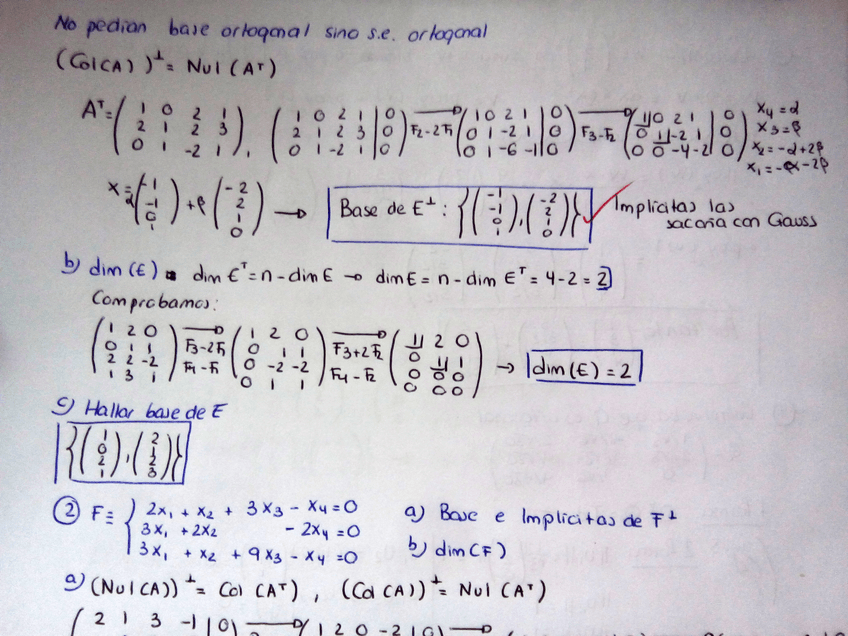 No pedian base ortogonal sino s.e. ortogonal
(Col(A))^⊥ = Nul(A^T)
A^T = (1 0 2 1; 2 1 2 3; 0 1 -2 1), (1 0 2 1 | 0; 2 1 2 3 | 0; 0 1 -2 1 | 0) → F2-2F1 (1 0 2 1 | 0; 0 1 -2 1 | 0; 0 1 -6 -1 | 0) → F3-F2 (1 0 2 1 | 0; 0 1 -2 1 | 0; 0 0 -4 -2 | 0) x4=α x3=β x2=-α+2β x1=-α-2β
x = α(-1; -1; 0; 1) + β(-2; 2; 1; 0) → Base de E^⊥: {(-1; -1; 0; 1), (-2; 2; 1; 0)} ✓ Implícitas las sacaría con Gauss
b) dim(E) dim E^T = n - dim E → dim E = n - dim E^T = 4-2 = 2
Comprobamos:
(1 2 0; 0 1 1; 2 2 -2; 1 3 1) → F3-2F1 F4-F1 (1 2 0; 0 1 1; 0 -2 -2; 0 1 1) → F3+2F2 F4-F2 (1 2 0; 0 1 1; 0 0 0; 0 0 0) → dim(E) = 2
c) Hallar base de E
{(1; 0; 2; 1), (2; 1; 2; 3)}
② F ≡ { 2x1 + x2 + 3x3 - x4 = 0 a) Base e Implícitas de F^⊥
3x1 + 2x2 - 2x4 = 0
3x1 + x2 + 9x3 - x4 = 0 b) dim(F)
a) (Nul(A))^⊥ = Col(A^T), (Col(A))^⊥ = Nul(A^T)
(2 1 3 -1 | 0) → (1 2 0 -2 | 0) →